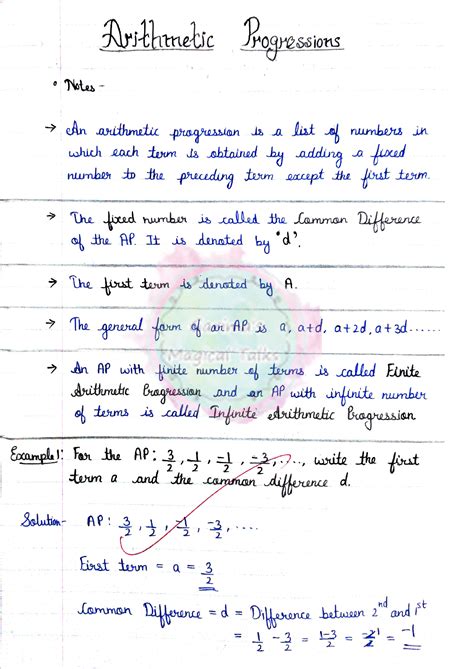 Arithmetic Progressions
• Notes -
→ An arithmetic progression is a list of numbers in
which each term is obtained by adding a fixed
number to the preceding term except the first term.
→ The fixed number is called the Common Difference
of the AP. It is denoted by 'd'.
→ The first term is denoted by A.
→ The general form of an AP is a, a+d, a+2d, a+3d......
Magical Talks
→ An AP with finite number of terms is called Finite
Arithmetic Progression and an AP with infinite number
of terms is called Infinite Arithmetic Progression
Example 1: For the AP: 3/2, 1/2, -1/2, -3/2, ...., write the first
term a and the common difference d.
Solution- AP: 3/2, 1/2, -1/2, -3/2, ....
First term = a = 3/2
Common Difference = d = Difference between 2nd and 1st
= 1/2 - 3/2 = 1-3/2 = -2/2 = -1/1